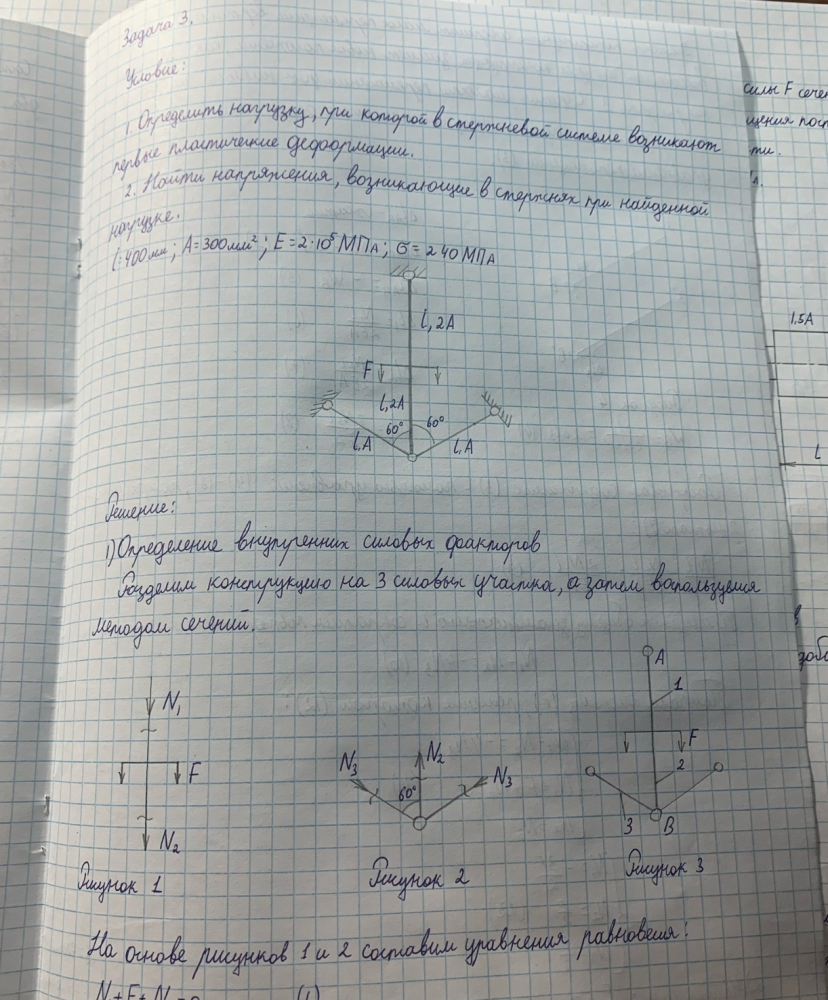 Задача 3.
Условие:
1. Определить нагрузку, при которой в стержневой системе возникают
первые пластические деформации.
2. Найти напряжения, возникающие в стержнях при найденной
нагрузке.
l=400мм; A=300мм²; E=2·10⁵МПа; σ=240МПа
l, 2A
F
l, 2A
60°
60°
l, A
l, A
Решение:
1) Определение внутренних силовых факторов
Разделим конструкцию на 3 силовых участка, а затем воспользуемся
методом сечений.
N₁
F
N₂
Рисунок 1
N₃
N₂
N₃
60°
Рисунок 2
A
1
F
2
3
B
Рисунок 3
На основе рисунков 1 и 2 составим уравнения равновесия:
(1)
силы F
1.5A
L